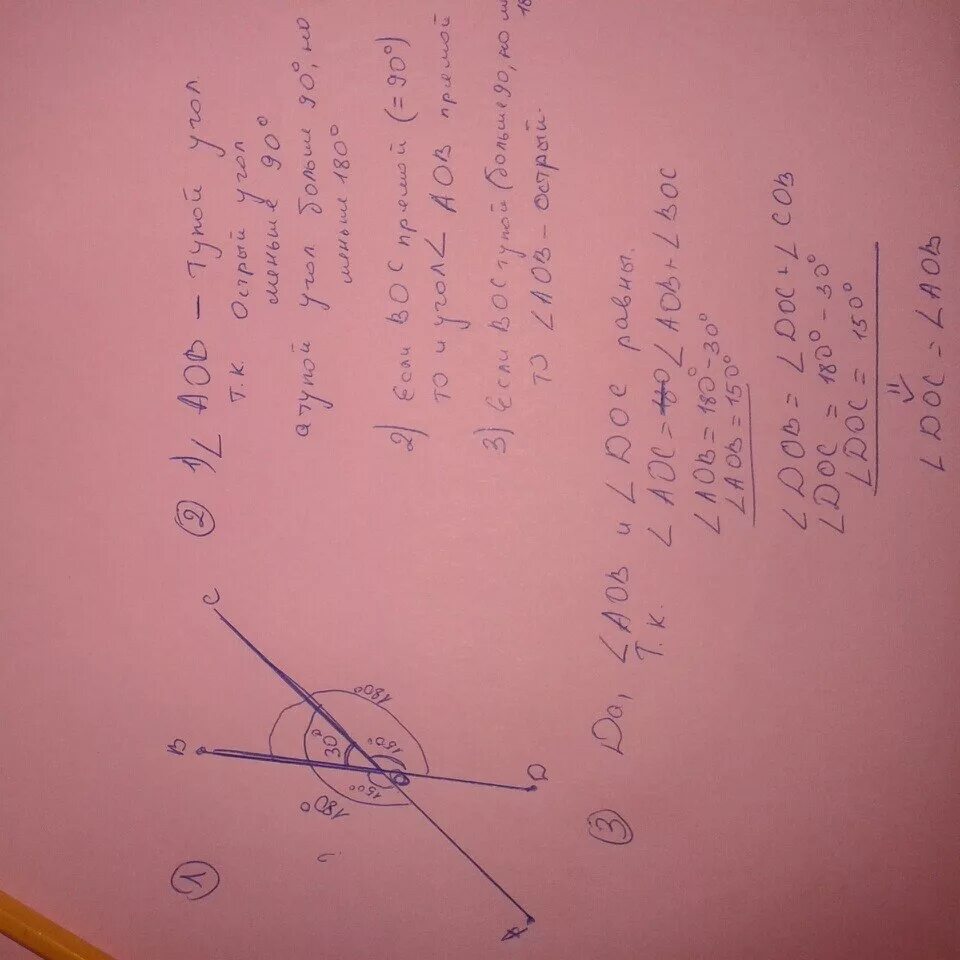 ①
B
C
180°
30°
180°
150°
150°
O
A
D
② 1) ∠ AOB — тупой угол
т.к. острый угол
меньше 90°
а тупой угол больше 90°, но
меньше 180°
2) Если BOC прямой (= 90°)
то и угол ∠ AOB прямой
3) Если BOC тупой (больше 90, но
то ∠ AOB – острый.
③ Да, ∠ AOB и ∠ DOC равны.
т.к. ∠ AOC = ∠ AOB + ∠ BOC
∠ AOB = 180° - 30°
∠ AOB = 150°
∠ DOB = ∠ DOC + ∠ COB
∠ DOC = 180° - 30°
∠ DOC = 150°
⇓
∠ DOC = ∠ AOB